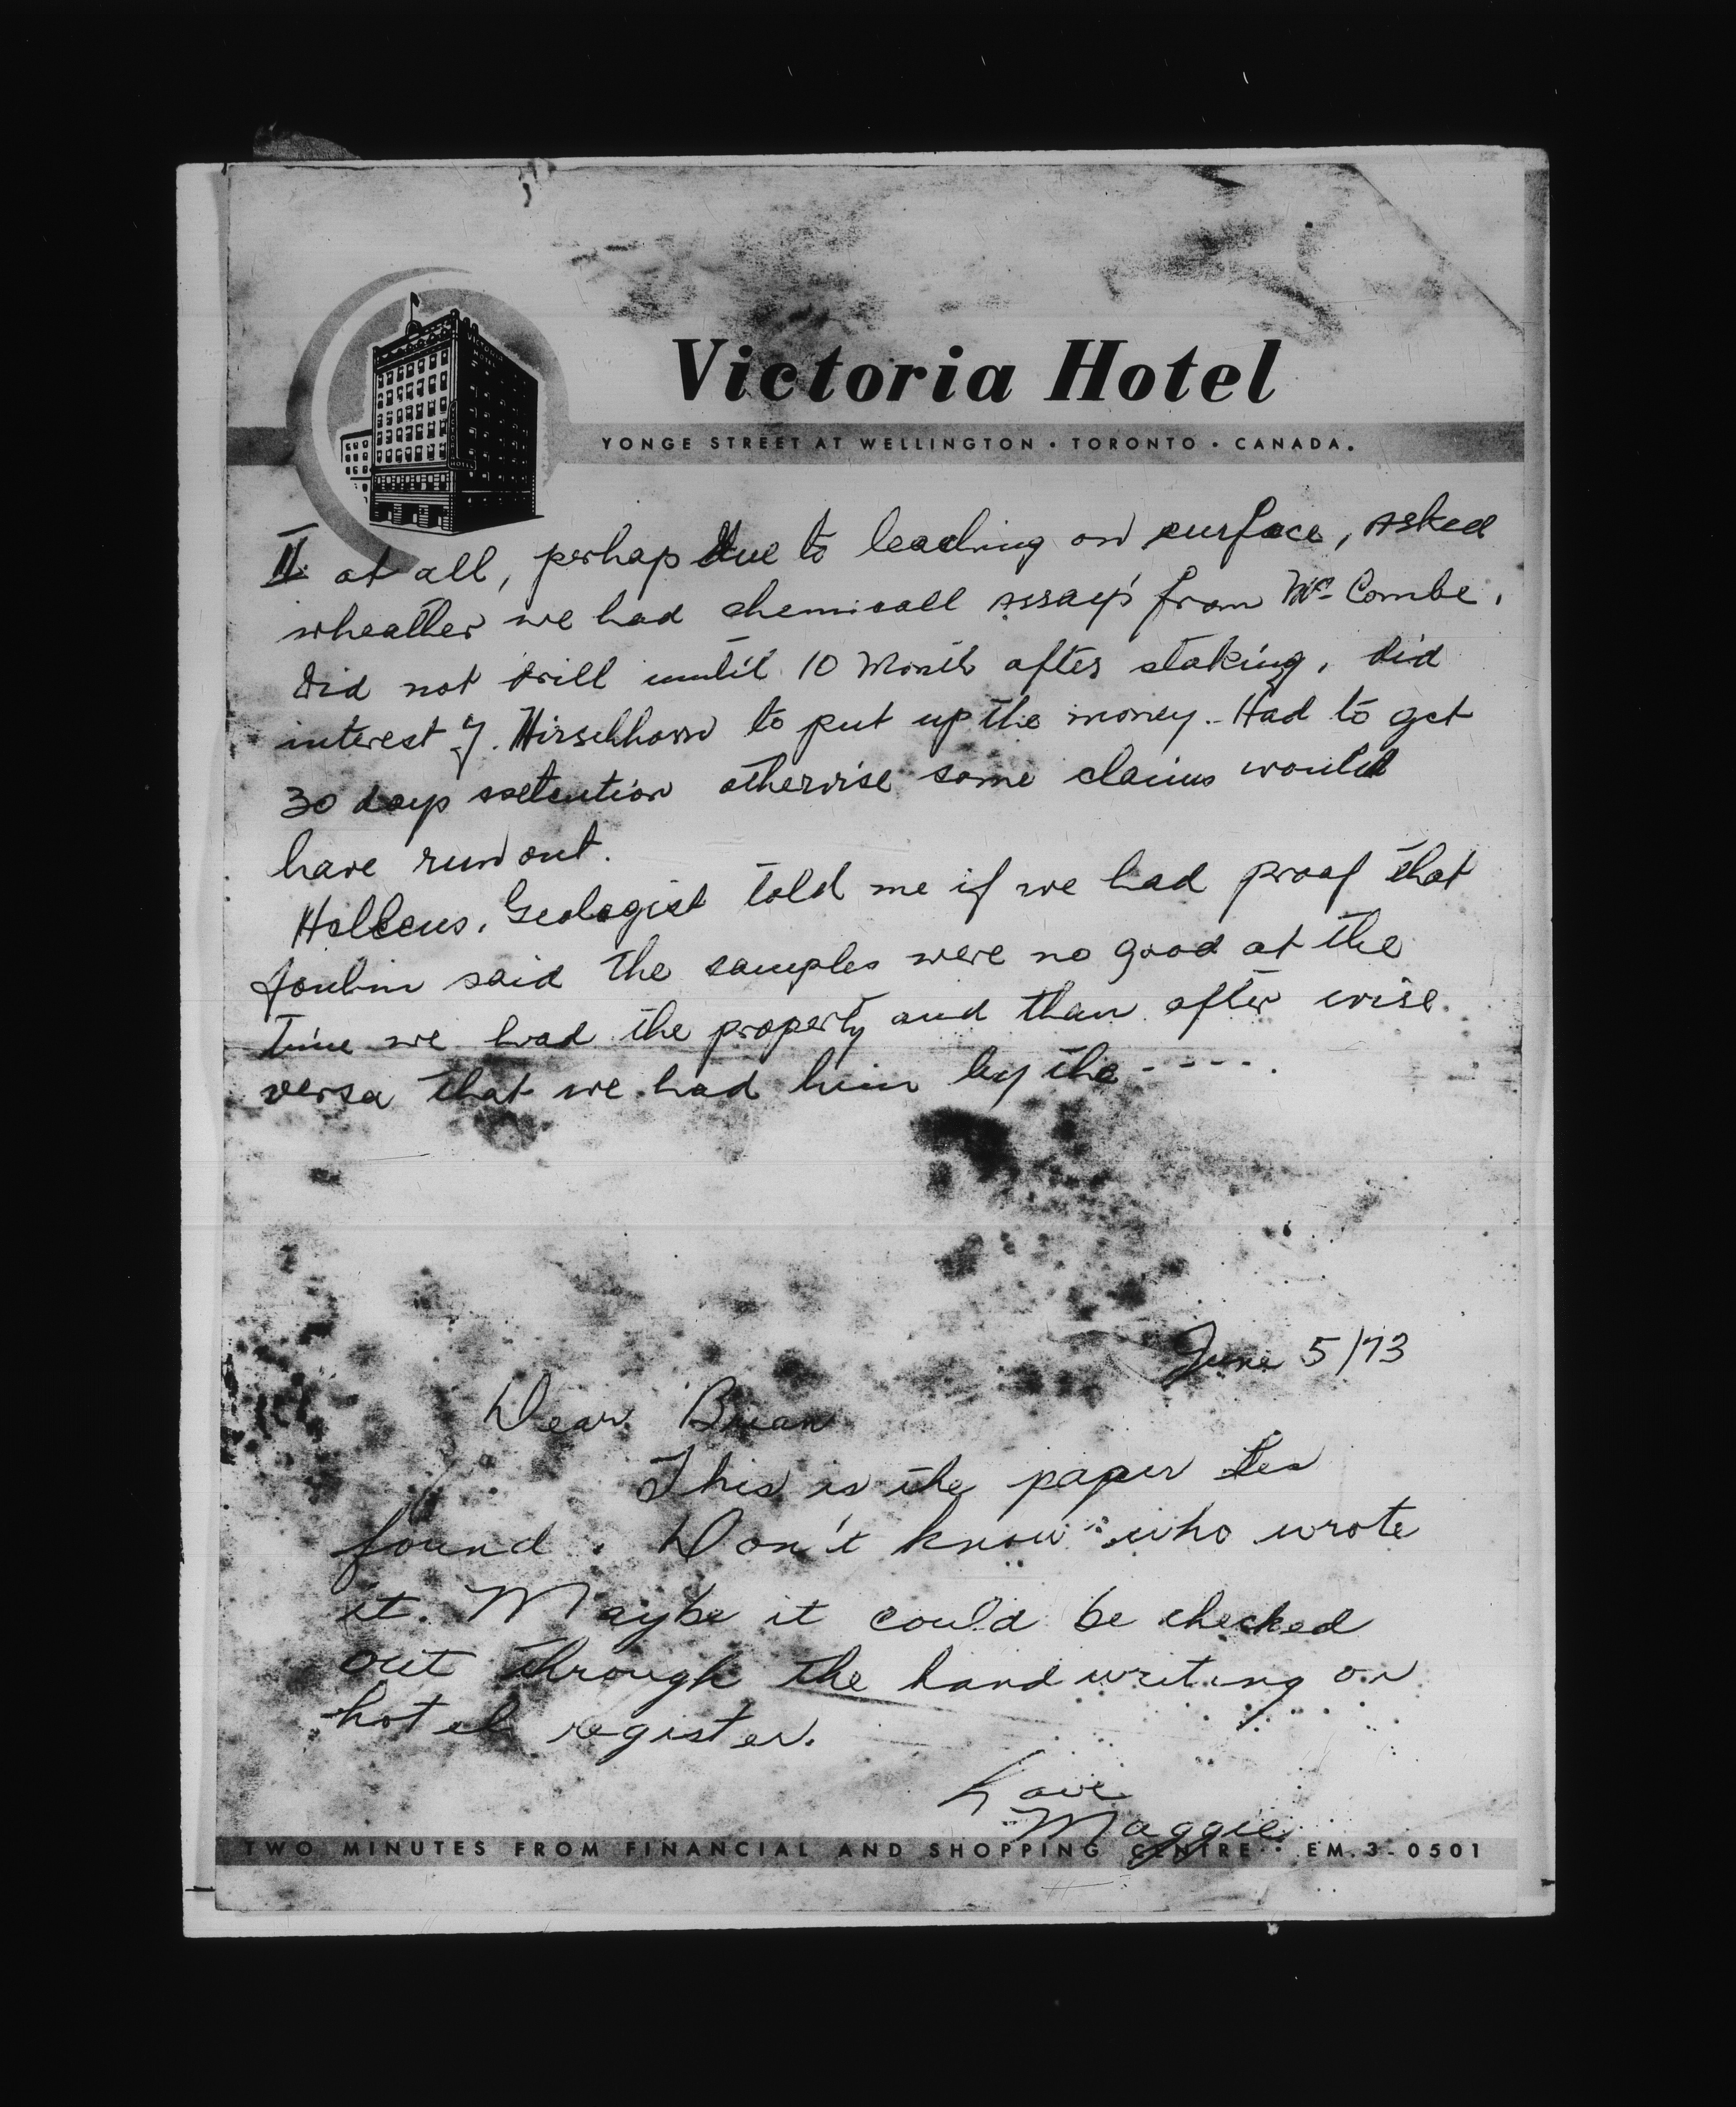 Victoria Hotel
YONGE STREET AT WELLINGTON • TORONTO • CANADA.
II. at all, perhap due to leaching on surface, asked
wheather we had chemicall assays from Mc Combe.
Did not drill until 10 Month after staking, did
interest J. Hirschhorn to put up the money. Had to get
30 days extention otherwise some claims would
have run out.
Geologist told me if we had proof that
Joubin said the samples were no good at the
time we had the property and than after wise
versa that we had him by the - - - - .
June 5/73
Dear Brian
This is the paper Les
found. Don't know who wrote
it. Maybe it could be checked
out through the handwriting on
hotel register.
Love
Maggie
TWO MINUTES FROM FINANCIAL AND SHOPPING CENTRE • EM. 3-0501